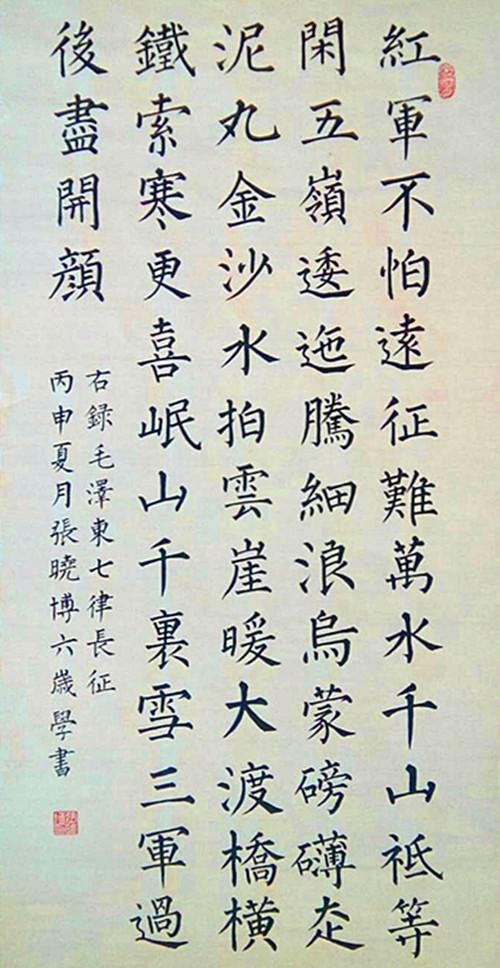 紅軍不怕遠征難萬水千山祗等
閑五嶺逶迤騰細浪烏蒙磅礴走
泥丸金沙水拍雲崖暖大渡橋橫
鐵索寒更喜岷山千裏雪三軍過
後盡開顏
右錄毛澤東七律長征
丙申夏月張曉博六歲學書